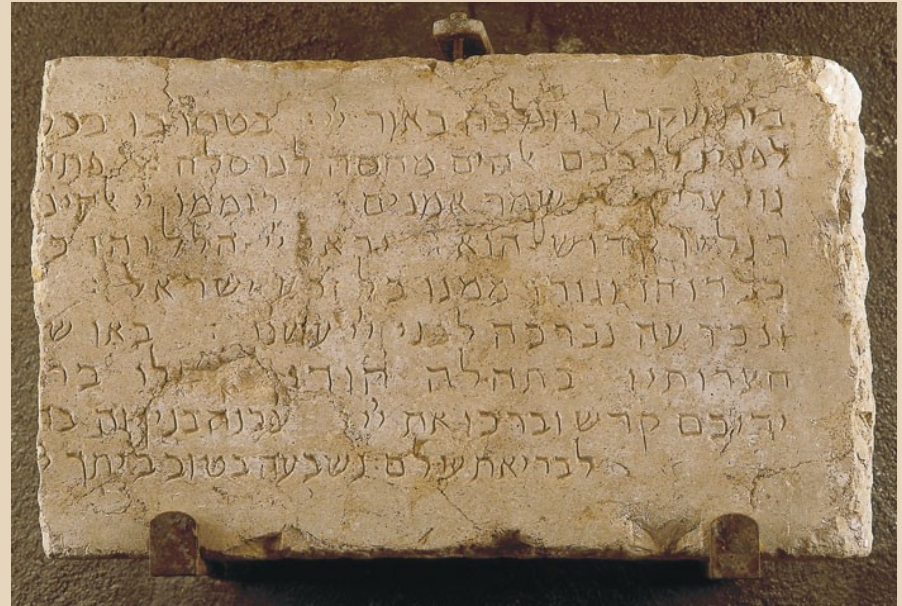 בית יעקב לכו ונלכה באור ייי בטחו בו בכל
לבבכם אלהים מחסה לנו סלה
גוי צדיק שמר אמנים רוממו ייי
רגליו קדוש הוא יראי ייי הללוהו
כבדוהו וגורו ממנו כל זרע ישראל :
ונכרעה נברכה לפני ייי עשנו : באו ש
חצרותיו בתהלה הודו לו
ידיכם קדש וברכו את ייי
לבריאת עולם נשבעה בטוב ביתך